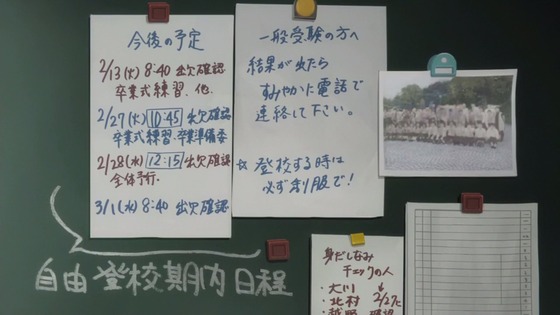 今後の予定
2/13(火) 8:40 出欠確認
卒業式練習.他.
2/27(火) 10:45 出欠確認
卒業式練習・卒業準備委
2/28(水) 12:15 出欠確認
全体予行.
3/1(水) 8:40 出欠確認
一般受験の方へ
結果が出たら
すみやかに電話で
連絡して下さい。
☆ 登校する時は
必ず制服で!
自由登校期内日程
身だしなみ
チェックの人
・大川
・北村 2/27に